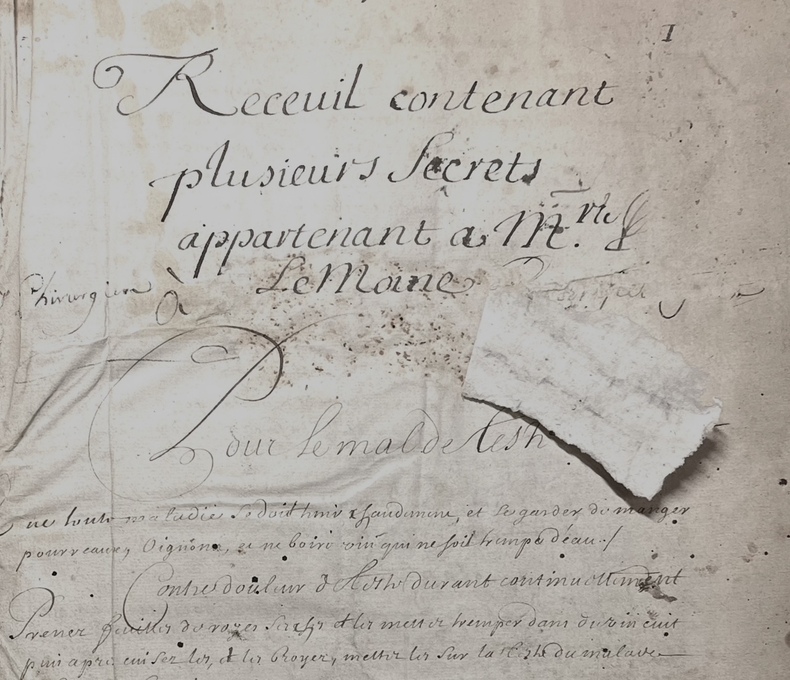 1
Receuil contenant
plusieurs Secrets
appartenant a M.rte
Le Moine
Chirurgien à
Pour le mal de test
toute maladie se doit tenir chaudement, et se garder de manger
pourreaux, Oignons, et ne boire vin qui ne soit trempé d'eau./
Contre douleur de teste durant continuellement
Prenez feuilles de rozes seiches et les mettez tremper dans du vin cuit
puis apres cuisez les, et les broyez, mettez les sur la teste du malade